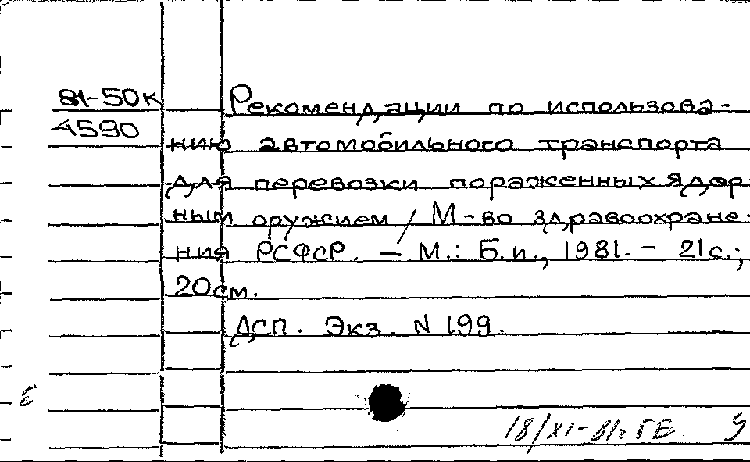 81-50к
4590
Рекомендации по использова-
нию автомобильного транспорта
для перевозки пораженных ядер
ным оружием / М-во здравоохране-
ния РСФСР. — М.: Б.и., 1981. – 21с.;
20см.
ДСП. Экз. N 199.
18/XI-81г.